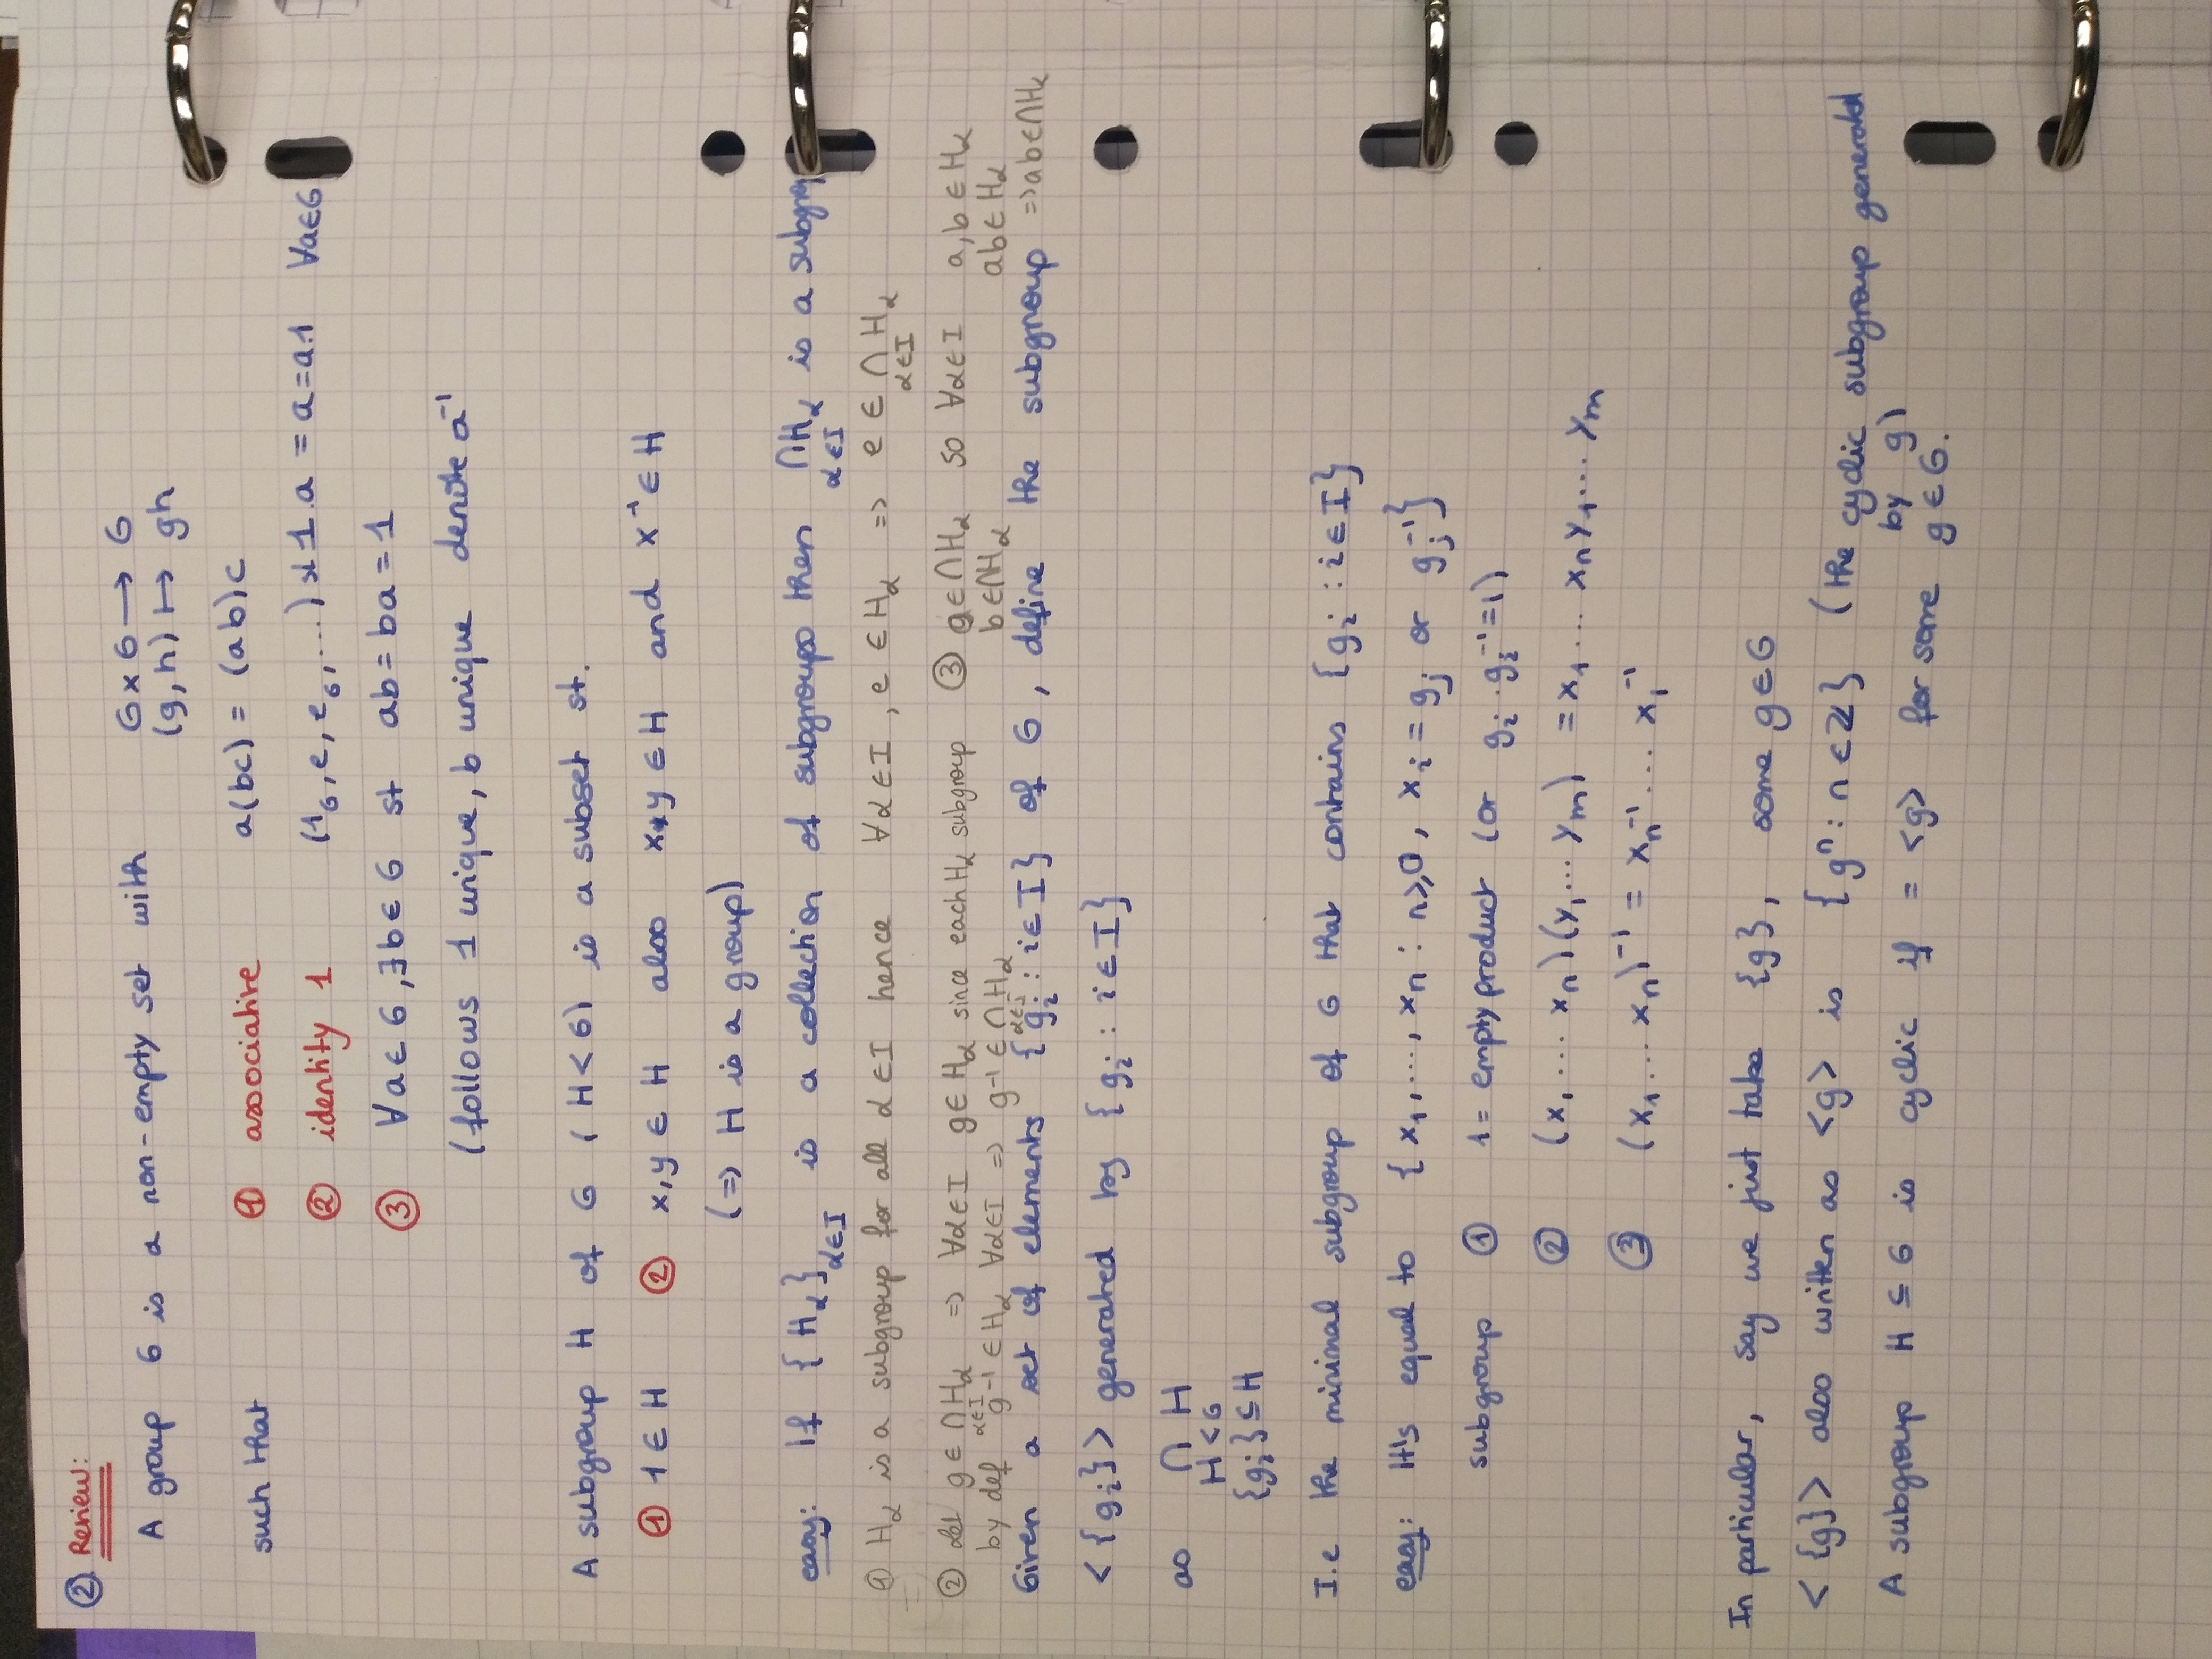 ② Review:
A group G is a non-empty set with G x G → G
(g,h) ↦ gh
such that ① associative a(bc) = (ab)c
② identity 1 (1_G, e, e_G, ...) 1.a = a = a.1 ∀a∈G
③ ∀a∈G, ∃b∈G st ab = ba = 1
(follows 1 unique, b unique denote a⁻¹
A subgroup H of G (H<G) is a subset st.
① 1∈H ② x,y ∈ H also x*y ∈ H and x⁻¹ ∈ H
(=> H is a group)
easy: If {H_α}_α∈I is a collection of subgroups then ∩H_α α∈I is a subgr
① H_α is a subgroup for all α∈I hence ∀α∈I, e ∈ H_α => e ∈ ∩ H_α α∈I
② let g ∈ ∩H_α α∈I => ∀α∈I g∈H_α since each H_α subgroup ③ a∈∩H_α so ∀α∈I a,b∈H_α
by def g⁻¹∈H_α ∀α∈I => g⁻¹ ∈ ∩H_α α∈I b∈∩H_α ab∈H_α
=> ab∈∩H_α
Given a set of elements {g_i : i∈I} of G, define the subgroup
<{g_i}> generated by {g_i : i∈I}
as ∩ H
H<G
{g_i}⊆H
I.e the minimal subgroup of G that contains {g_i : i∈I}
easy: It's equal to {x₁,..., xₙ : n≥0, x_i = g_j or g_j⁻¹}
subgroup ① 1 = empty product (or g_i · g_i⁻¹ = 1)
② (x₁....xₙ)(y₁....yₘ) = x₁.... xₙy₁.... yₘ
③ (x₁... xₙ)⁻¹ = xₙ⁻¹.... x₁⁻¹
In particular, say we just take {g}, some g∈G
<{g}> also written as <g> is {gⁿ : n∈ℤ} (the cyclic subgroup generated
by g)
A subgroup H ⊆ G is cyclic if = <g> for some g∈G.